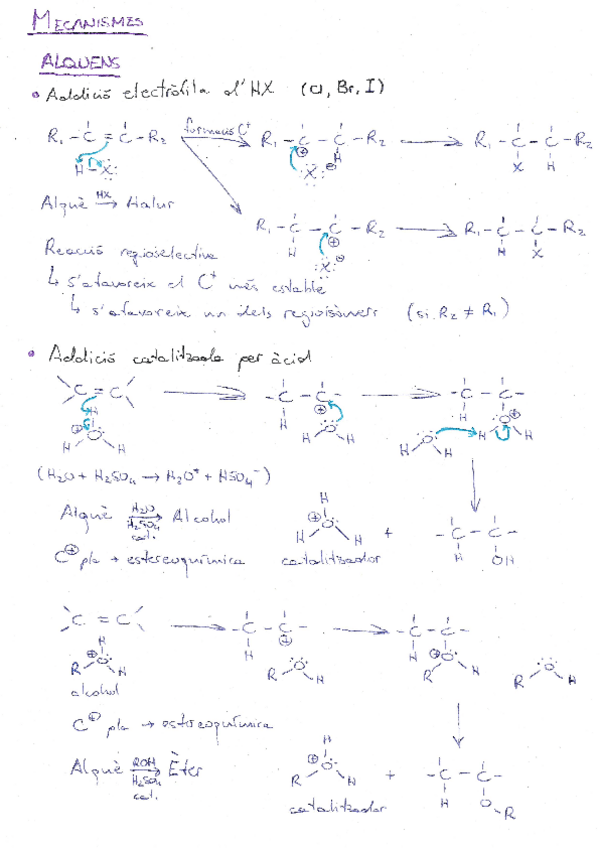 MECANISMES
ALQUENS
• Addició electròfila d'HX (Cl, Br, I)
R₁ - C = C - R₂
formació C⁺
R₁ - C - C - R₂
⊕ H
H - X
X ⊖
R₁ - C - C - R₂
X H
Alquè HX → Halur
R₁ - C - C - R₂
H ⊕
X ⊖
R₁ - C - C - R₂
H X
Reacció regioselectiva
↳ s'afavoreix el C⁺ més estable
↳ s'afavoreix un dels regioisòmers (si R₂ ≠ R₁)
• Addició catalitzada per àcid
C = C
H
⊕ O
H H
- C - C -
H ⊕
O
H H
- C - C -
H O ⊕
H H
O
H H
(H₂O + H₂SO₄ → H₃O⁺ + HSO₄⁻)
Alquè H₂O → H₂SO₄ cat. Alcohol
H
⊕ O
H H
+
- C - C -
H OH
C⊕ pla → estereoquímica
catalitzador
C = C
H
⊕ O
R H
alcohol
- C - C -
H ⊕
O
R H
- C - C -
H ⊕ O
R H
O
R H
C⊕ pla → estereoquímica
Alquè ROH → H₂SO₄ cat. Èter
H
⊕ O
R H
catalitzador
+
- C - C -
H O - R